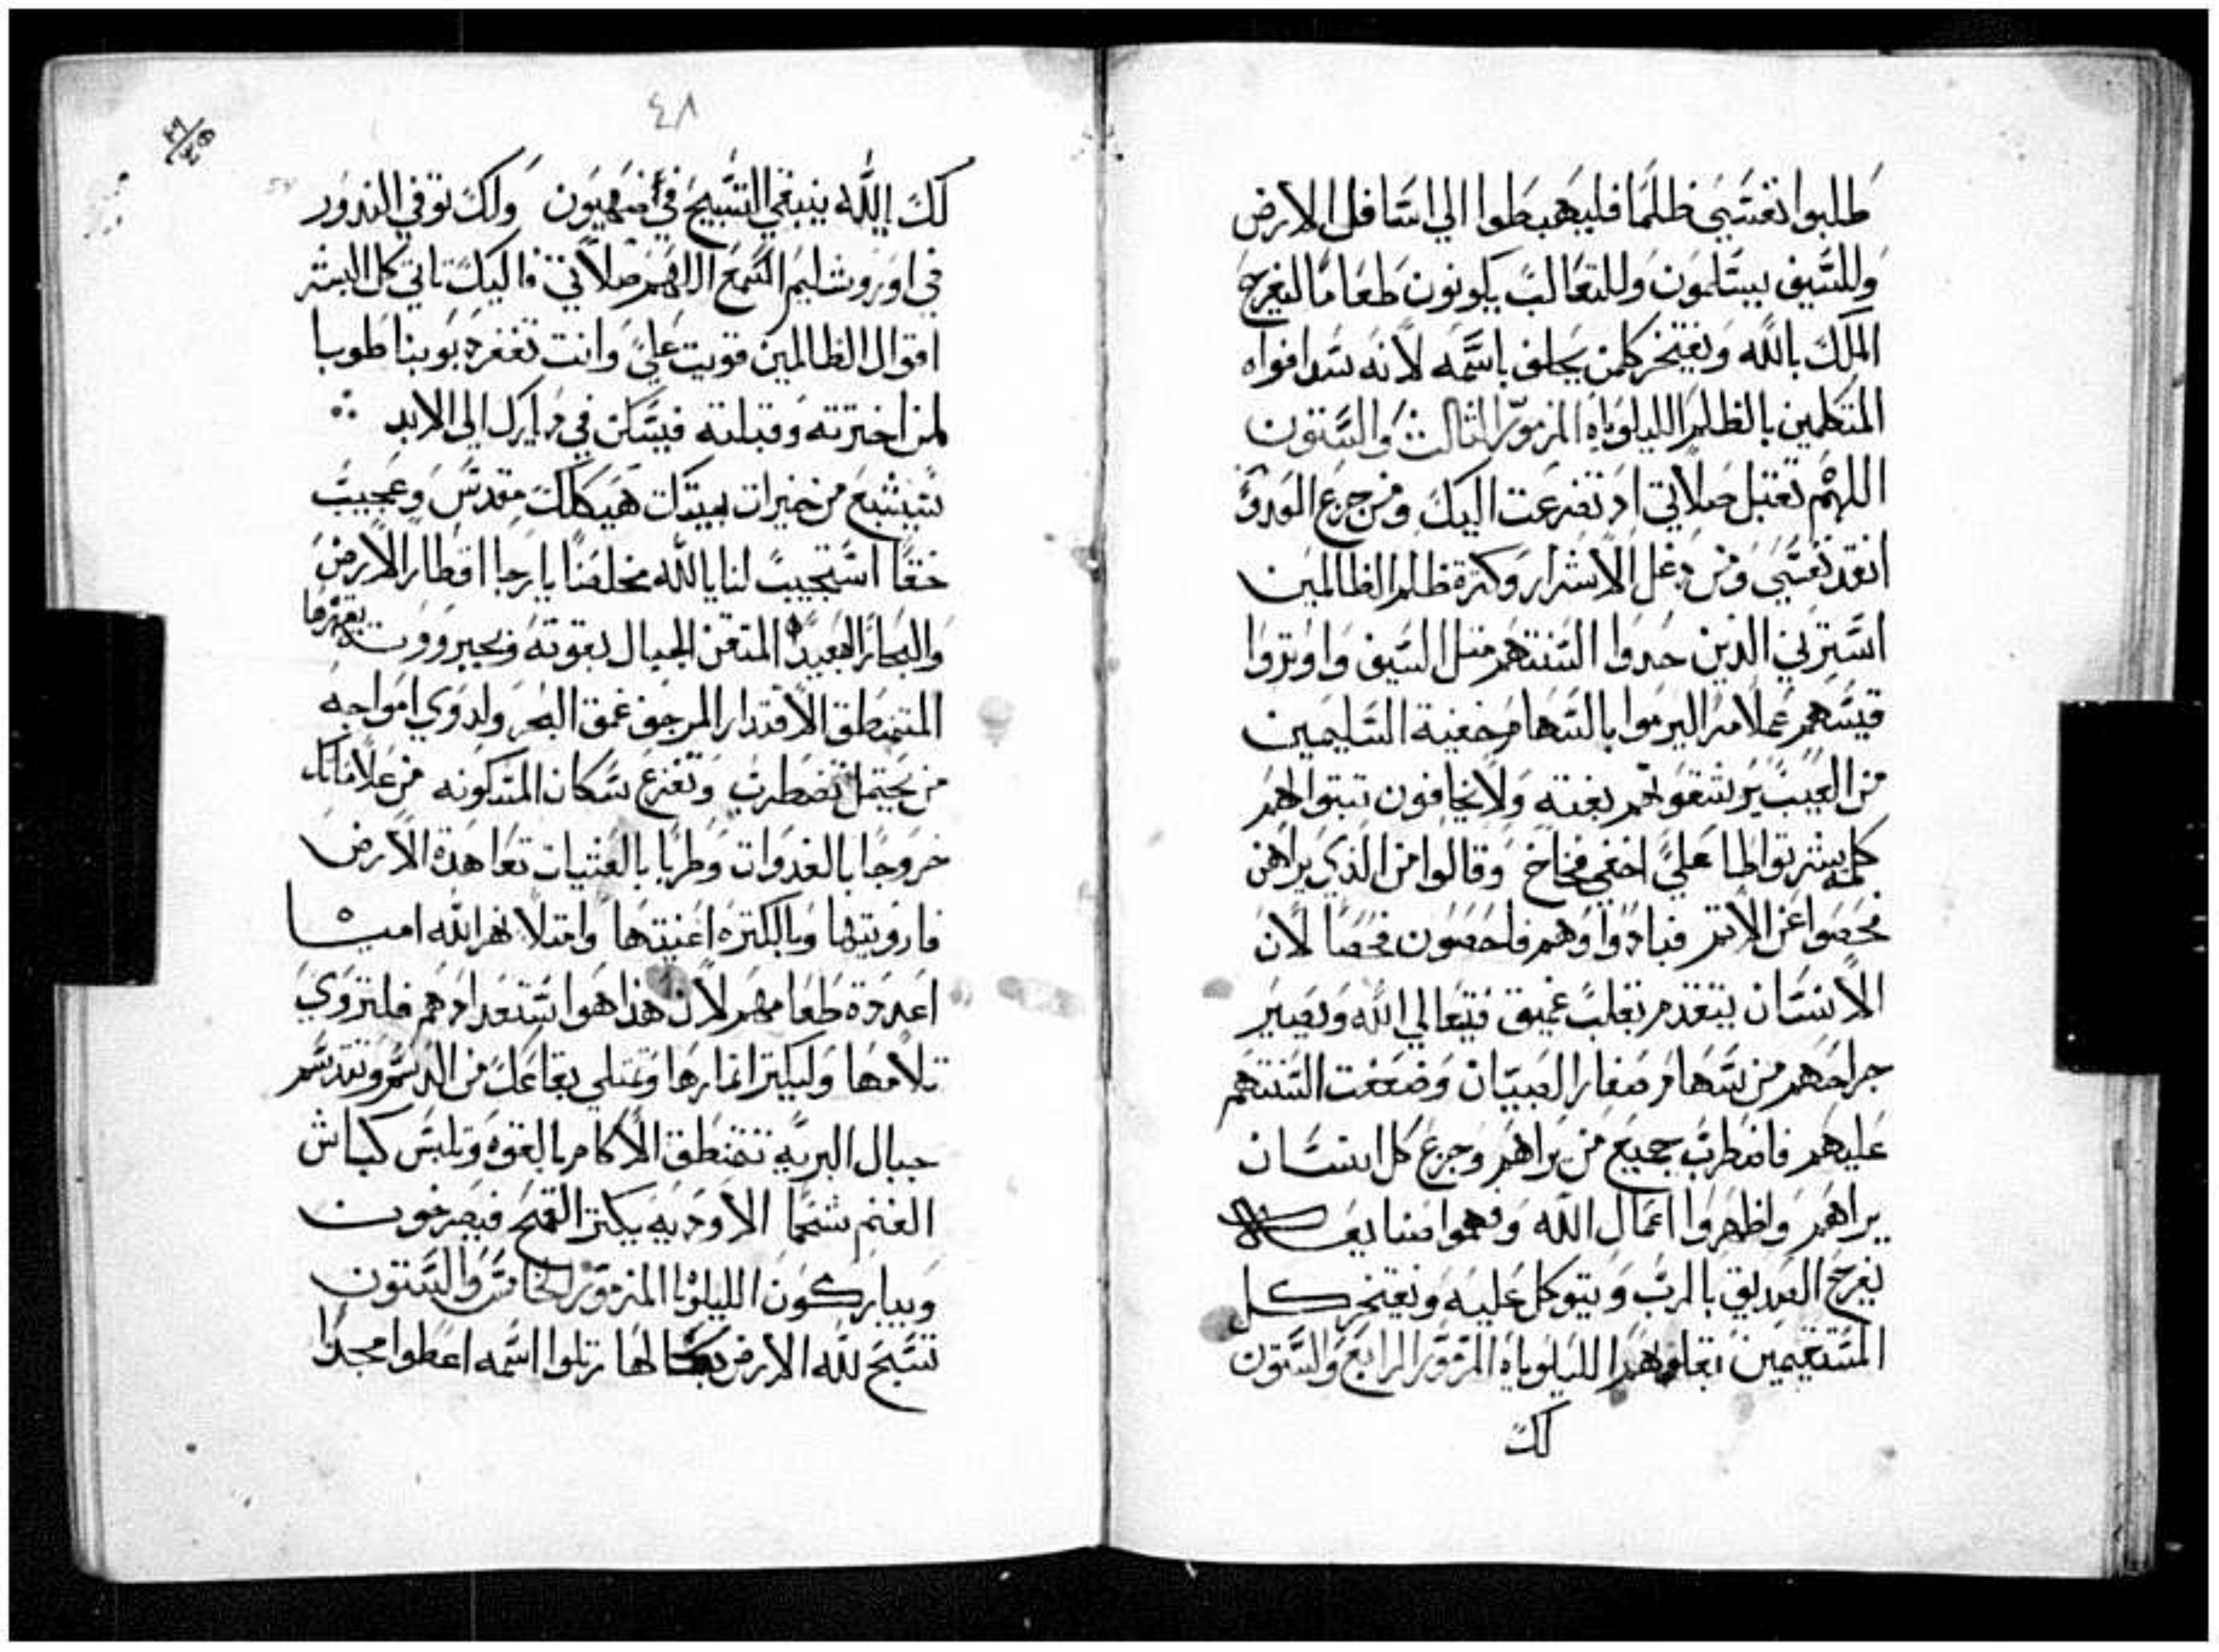 طلبوا نفسي ظلما فليهبطوا الي اسافل الارض
وللسيف يسلمون وللثعالب يكونون طعاما ليفرح
الملك بالله ويفتخر كلمن يحلف باسمه لانه سد افواه
المتكلمين بالظلم الليلوياه المزمور الثالث والستون
اللهم تقبل صلاتي اذ تضرعت اليك ومن جزع العدو
انقذ نفسي ومن دغل الاشرار وكثرة ظلم الظالمين
استرني الذين حدوا السنتهم مثل السيف واوتروا
قسيهم عملا مرا ليرموا بالسهام خفية السليمين
من العيب يرشقوهم بغتة ولا يخافون ثبتوا لهم
كلمة شر تواطا علي اخفي فخاخ وقالوا من الذي يراهن
فحصوا عن الاثم فبادوا وهم فاحصون فحصا لان
الانسان يتقدم بقلب عميق فيتعالي الله ويصير
جراحهم من سهام صغار الصبيان وضعفت السنتهم
عليهم فاضطرب جميع من يراهم وجزع كل انسان
يراهم واظهروا اعمال الله وفهموا صنايعه
يفرح الصديق بالرب ويتوكل عليه ويفتخر كل
المستقيمين بقلوبهم الليلوياه المزمور الرابع والستون
لك
٤٨
لك يالله ينبغي التسبيح في صهيون ولك توفي النذور
في اوروشليم اسمع اللهم صلاتي فاليك تاتي كل البشر
اقوال الظالمين قويت علي وانت تغفر ذنوبنا طوبا
لمن اخترته وقبلته فيسكن في ديارك الي الابد
نشبع من خيرات بيتك هيكلك مقدس وعجيب
حقا استجيب لنا يالله مخلصنا يارجا اقطار الارض
والبحار البعيدة المتقن الجبال بقوته وبجبرووت يقهرها
المتمنطق الاقتدار المرجف عمق البحر ولدوي امواجه
من يحتمل تضطرب وتفزع سكان المسكونه من علاماتك
خروجا بالغدوات وطربا بالعشيات تعاهدة الارض
فارويتها وبالكثره اغنيتها وامتلا نهر الله امياها
اعددة طعامهم لان هذا هو استعدادهم فلتروي
تلامها وليكثر اثمارها وتمتلي بقاعك من الدسم وتدسم
جبال البرية تتمنطق الاكام بالقوه وتلبس كباش
الغنم شحما الاوديه يكثر القمح فيصرخون
ويباركون الليلويا المزمور الخامس والستون
تسبح لله الارض بكمالها رتلوا اسمه اعطوا مجدا